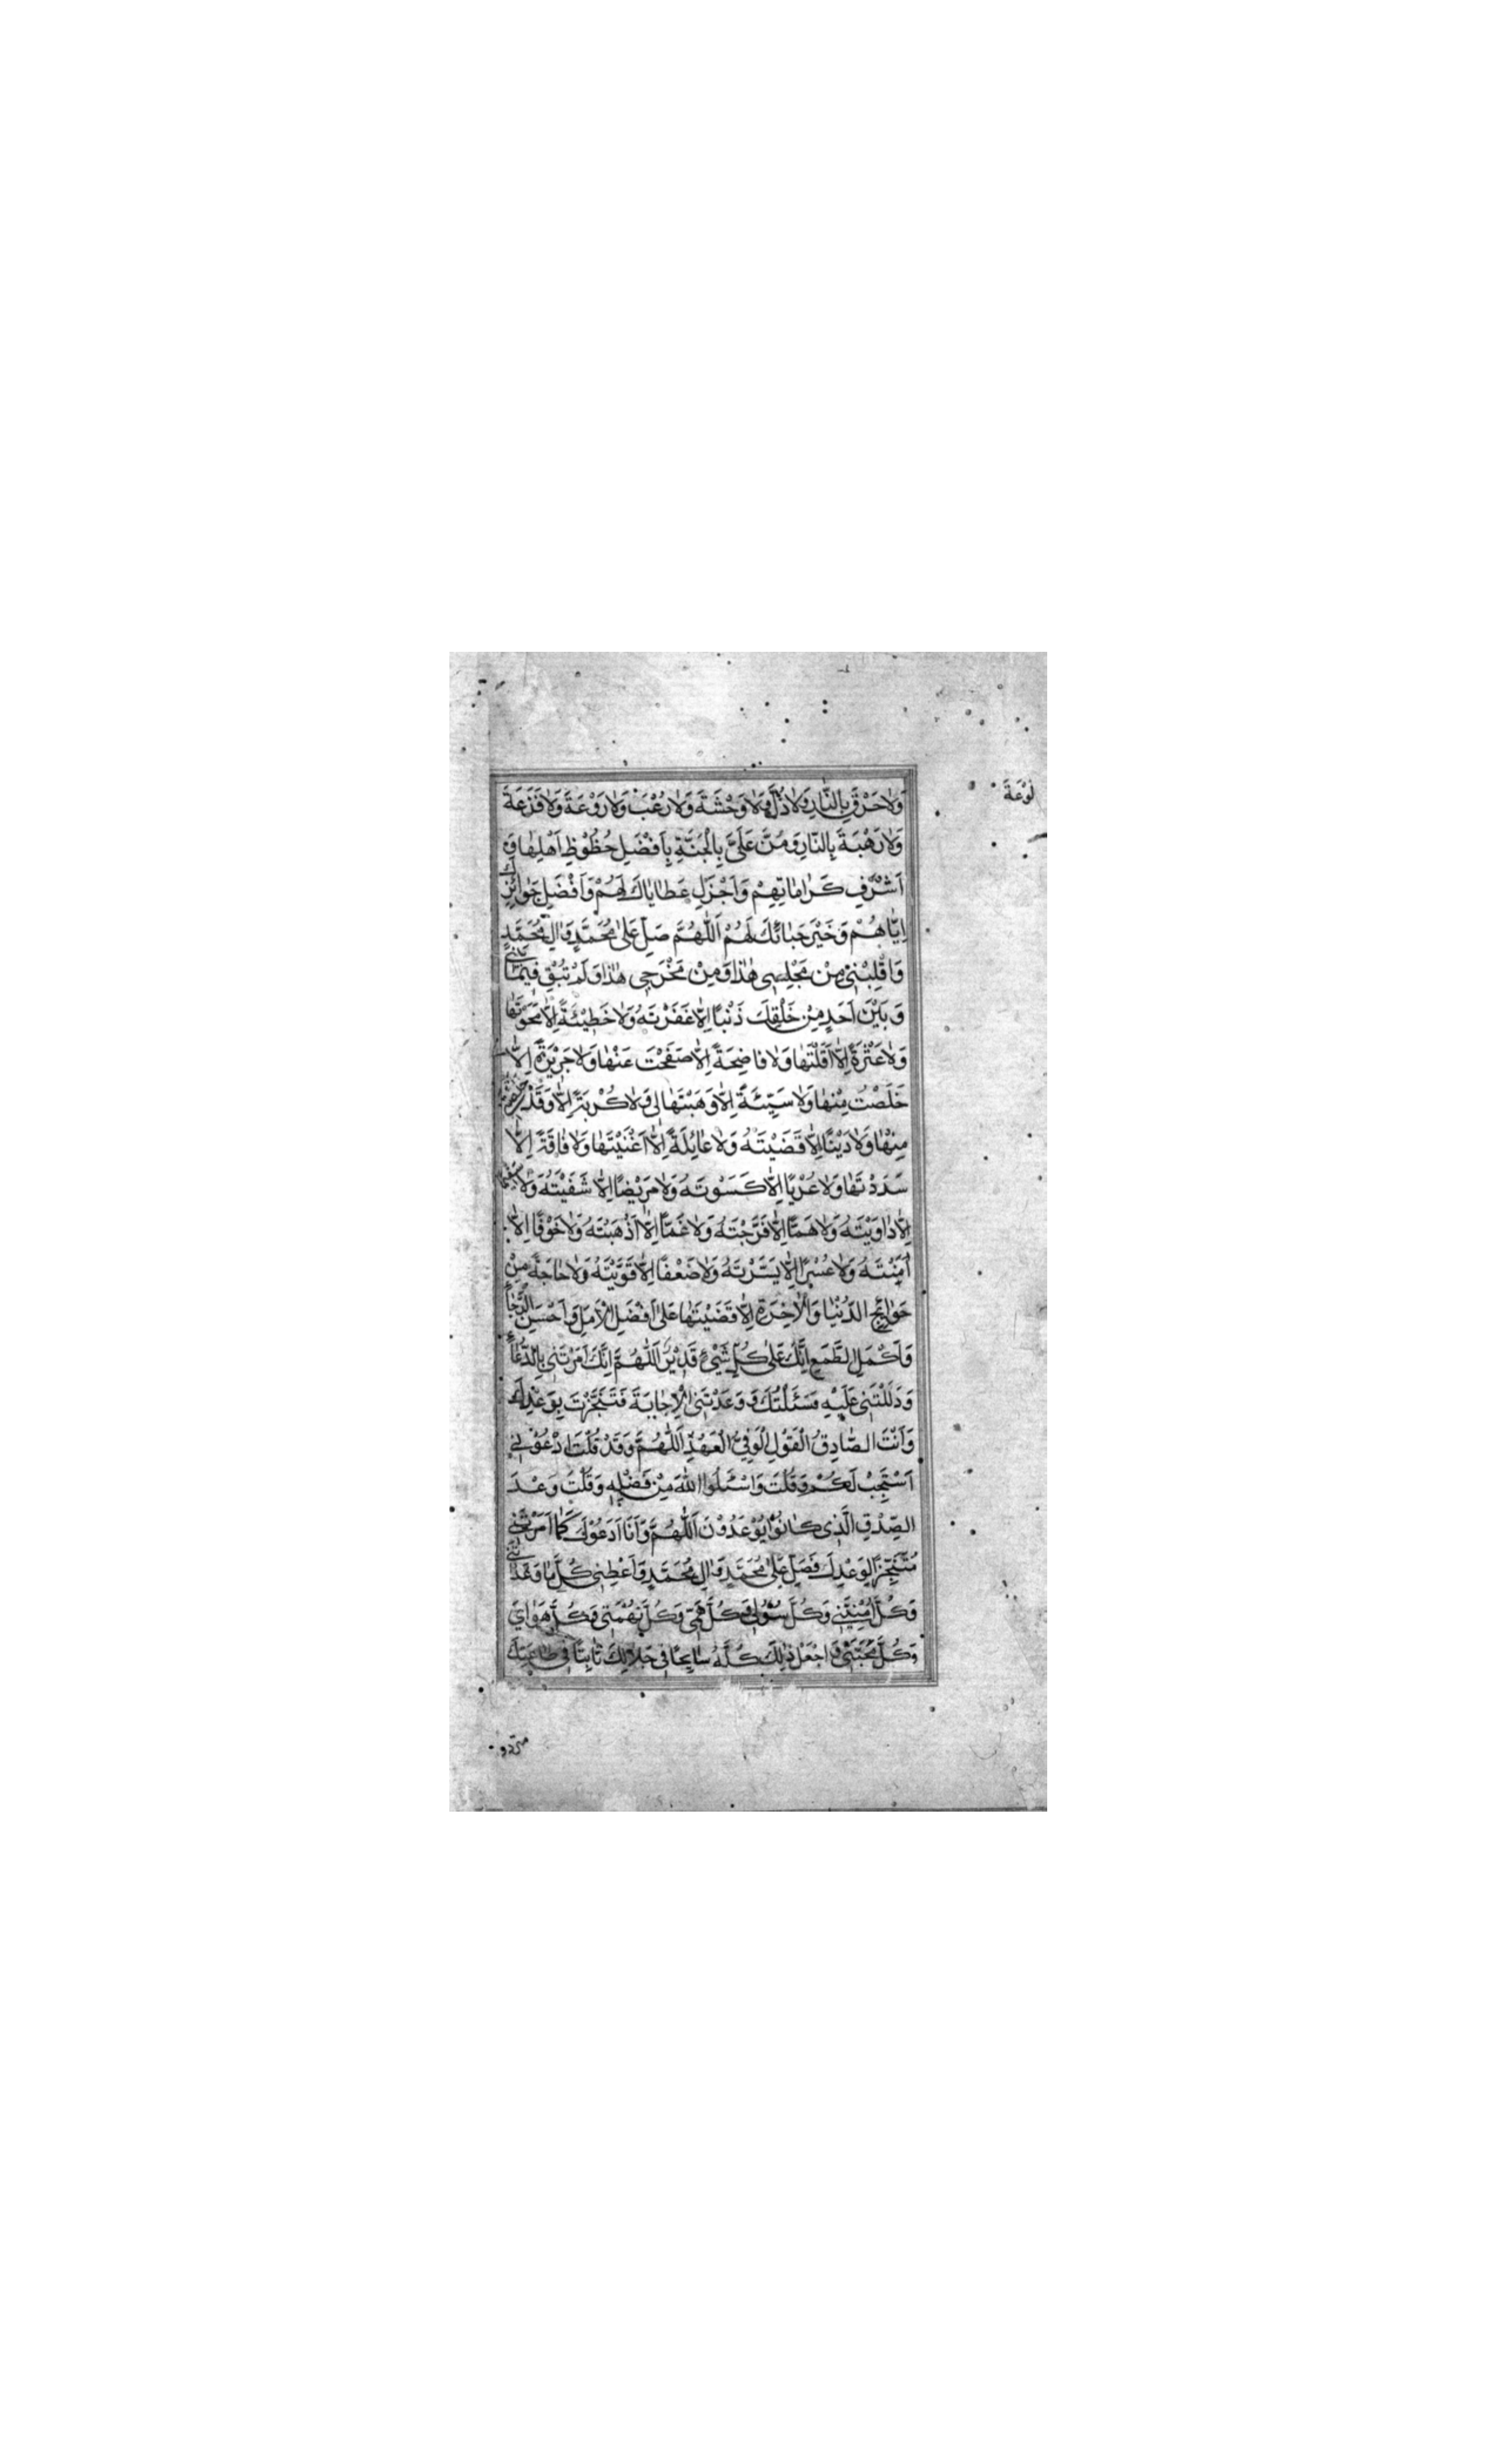 وَلَا حَرْقٍ بِالنَّارِ وَلَا ذُلٍّ وَلَا وَحْشَةٍ وَلَا رُعْبٍ وَلَا رَوْعَةٍ وَلَا فَزْعَةٍ
لَوْعَةَ
وَلَا رَهْبَةَ بِالنَّارِ وَمُنَّ عَلَيَّ بِالْجَنَّةِ بِاَفْضَلِ حُظُوْظِ اَهْلِهَا وَ
اَشْرَفِ كَرَامَاتِهِمْ وَاَجْزَلِ عَطَايَاكَ لَهُمْ وَاَفْضَلِ جَوَائِزِكَ
اِيَّاهُمْ وَخَيْرِ حَبَائِكَ لَهُمْ اَللّٰهُمَّ صَلِّ عَلٰى مُحَمَّدٍ وَاٰلِ مُحَمَّدٍ
وَاقْلِبْنِيْ مِنْ مَجْلِسِي هٰذَا وَمِنْ مَخْرَجِي هٰذَا وَلَمْ تُبْقِ فِيْمَا بَيْنِي
وَبَيْنَ اَحَدٍ مِنْ خَلْقِكَ ذَنْبًا اِلَّا غَفَرْتَهُ وَلَا خَطِيْئَةً اِلَّا مَحَوْتَهَا
وَلَا عَثْرَةً اِلَّا اَقَلْتَهَا وَلَا فَاضِحَةً اِلَّا صَفَحْتَ عَنْهَا وَلَا جَرِيْرَةً اِلَّا
خَلَصْتَ مِنْهَا وَلَا سَيِّئَةً اِلَّا وَهَبْتَهَا لِي وَلَا كُرْبَةً اِلَّا وَقَدْ
مِنْهَا وَلَا دَيْنًا اِلَّا قَضَيْتَهُ وَلَا عَائِلَةً اِلَّا اَغْنَيْتَهَا وَلَا فَاقَةً اِلَّا
سَدَدْتَهَا وَلَا عُرْيًا اِلَّا كَسَوْتَهُ وَلَا مَرِيْضًا اِلَّا شَفَيْتَهُ وَلَا سَقِيْمًا
اِلَّا دَاوَيْتَهُ وَلَا هَمًّا اِلَّا فَرَّجْتَهُ وَلَا غَمًّا اِلَّا اَذْهَبْتَهُ وَلَا خَوْفًا اِلَّا
اٰمَنْتَهُ وَلَا عُسْرًا اِلَّا يَسَّرْتَهُ وَلَا ضَعْفًا اِلَّا قَوَّيْتَهُ وَلَا حَاجَةً مِنْ
حَوَائِجِ الدُّنْيَا وَالْاٰخِرَةِ اِلَّا قَضَيْتَهَا عَلٰى اَفْضَلِ الْاَمَلِ وَاَحْسَنِ الرَّجَاءِ
وَاَكْمَلِ الطَّمَعِ اِنَّكَ عَلٰى كُلِّ شَيْءٍ قَدِيْرٌ اَللّٰهُمَّ اِنَّكَ اَمَرْتَنِي بِالدُّعَاءِ
وَدَلَلْتَنِي عَلَيْهِ فَسَئَلْتُكَ وَوَعَدْتَنِي الْاِجَابَةَ فَتَنَجَّزْتُ بِوَعْدِكَ
وَاَنْتَ الصَّادِقُ الْقَوْلِ الْوَفِيُّ الْعَهْدِ اَللّٰهُمَّ وَقَدْ قُلْتَ ادْعُوْنِي
اَسْتَجِبْ لَكُمْ وَقُلْتَ وَاسْئَلُوا اللهَ مِنْ فَضْلِهِ وَقُلْتَ وَعْدَ
الصِّدْقِ الَّذِي كَانُوْا يُوْعَدُوْنَ اَللّٰهُمَّ وَاَنَا اَدْعُوْكَ كَمَا اَمَرْتَنِي
مُتَنَجِّزًا لِوَعْدِكَ فَصَلِّ عَلٰى مُحَمَّدٍ وَاٰلِ مُحَمَّدٍ وَاَعْطِنِي كُلَّ مَا وَعَدْتَنِي
وَكُلَّ اُمْنِيَّتِي وَكُلَّ سُؤْلِي وَكُلَّ هَمِّي وَكُلَّ نَهْمَتِي وَكُلَّ هَوَايَ
وَكُلَّ مَحَبَّتِي وَاجْعَلْ ذٰلِكَ كُلَّهُ سَايِحًا فِي جَلَالِكَ ثَابِتًا فِي طَاعَتِكَ